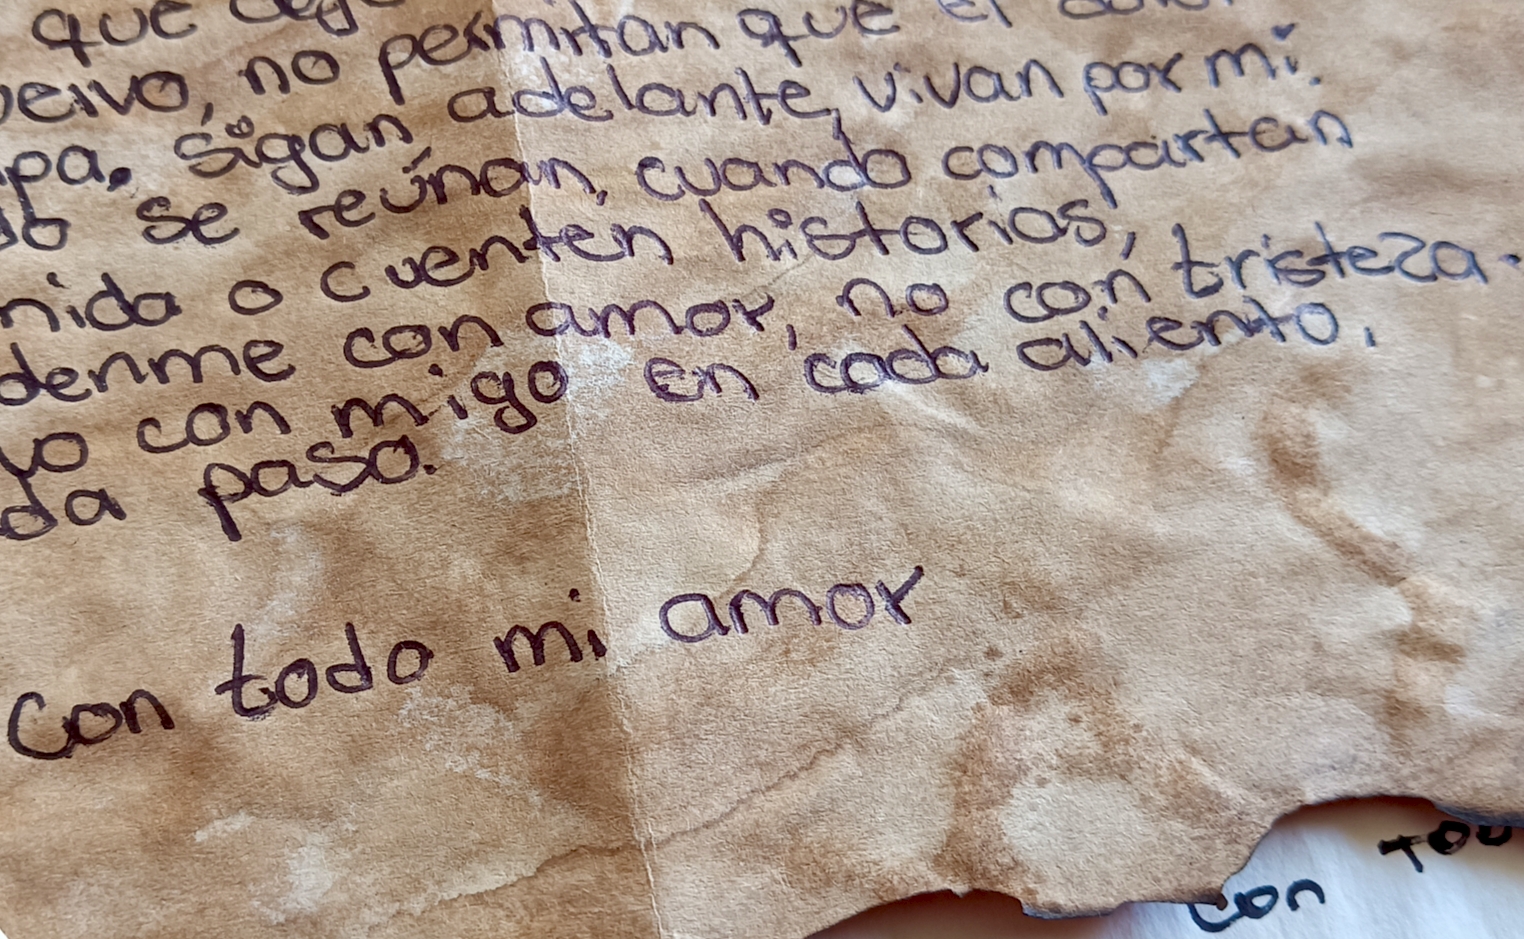 que
no permitan que el
sigan adelante, vivan por mi.
se reúnan, cuando compartan
o cuenten historias,
denme con amor, no con tristeza.
con migo en cada aliento,
da paso.
Con todo mi amor
con